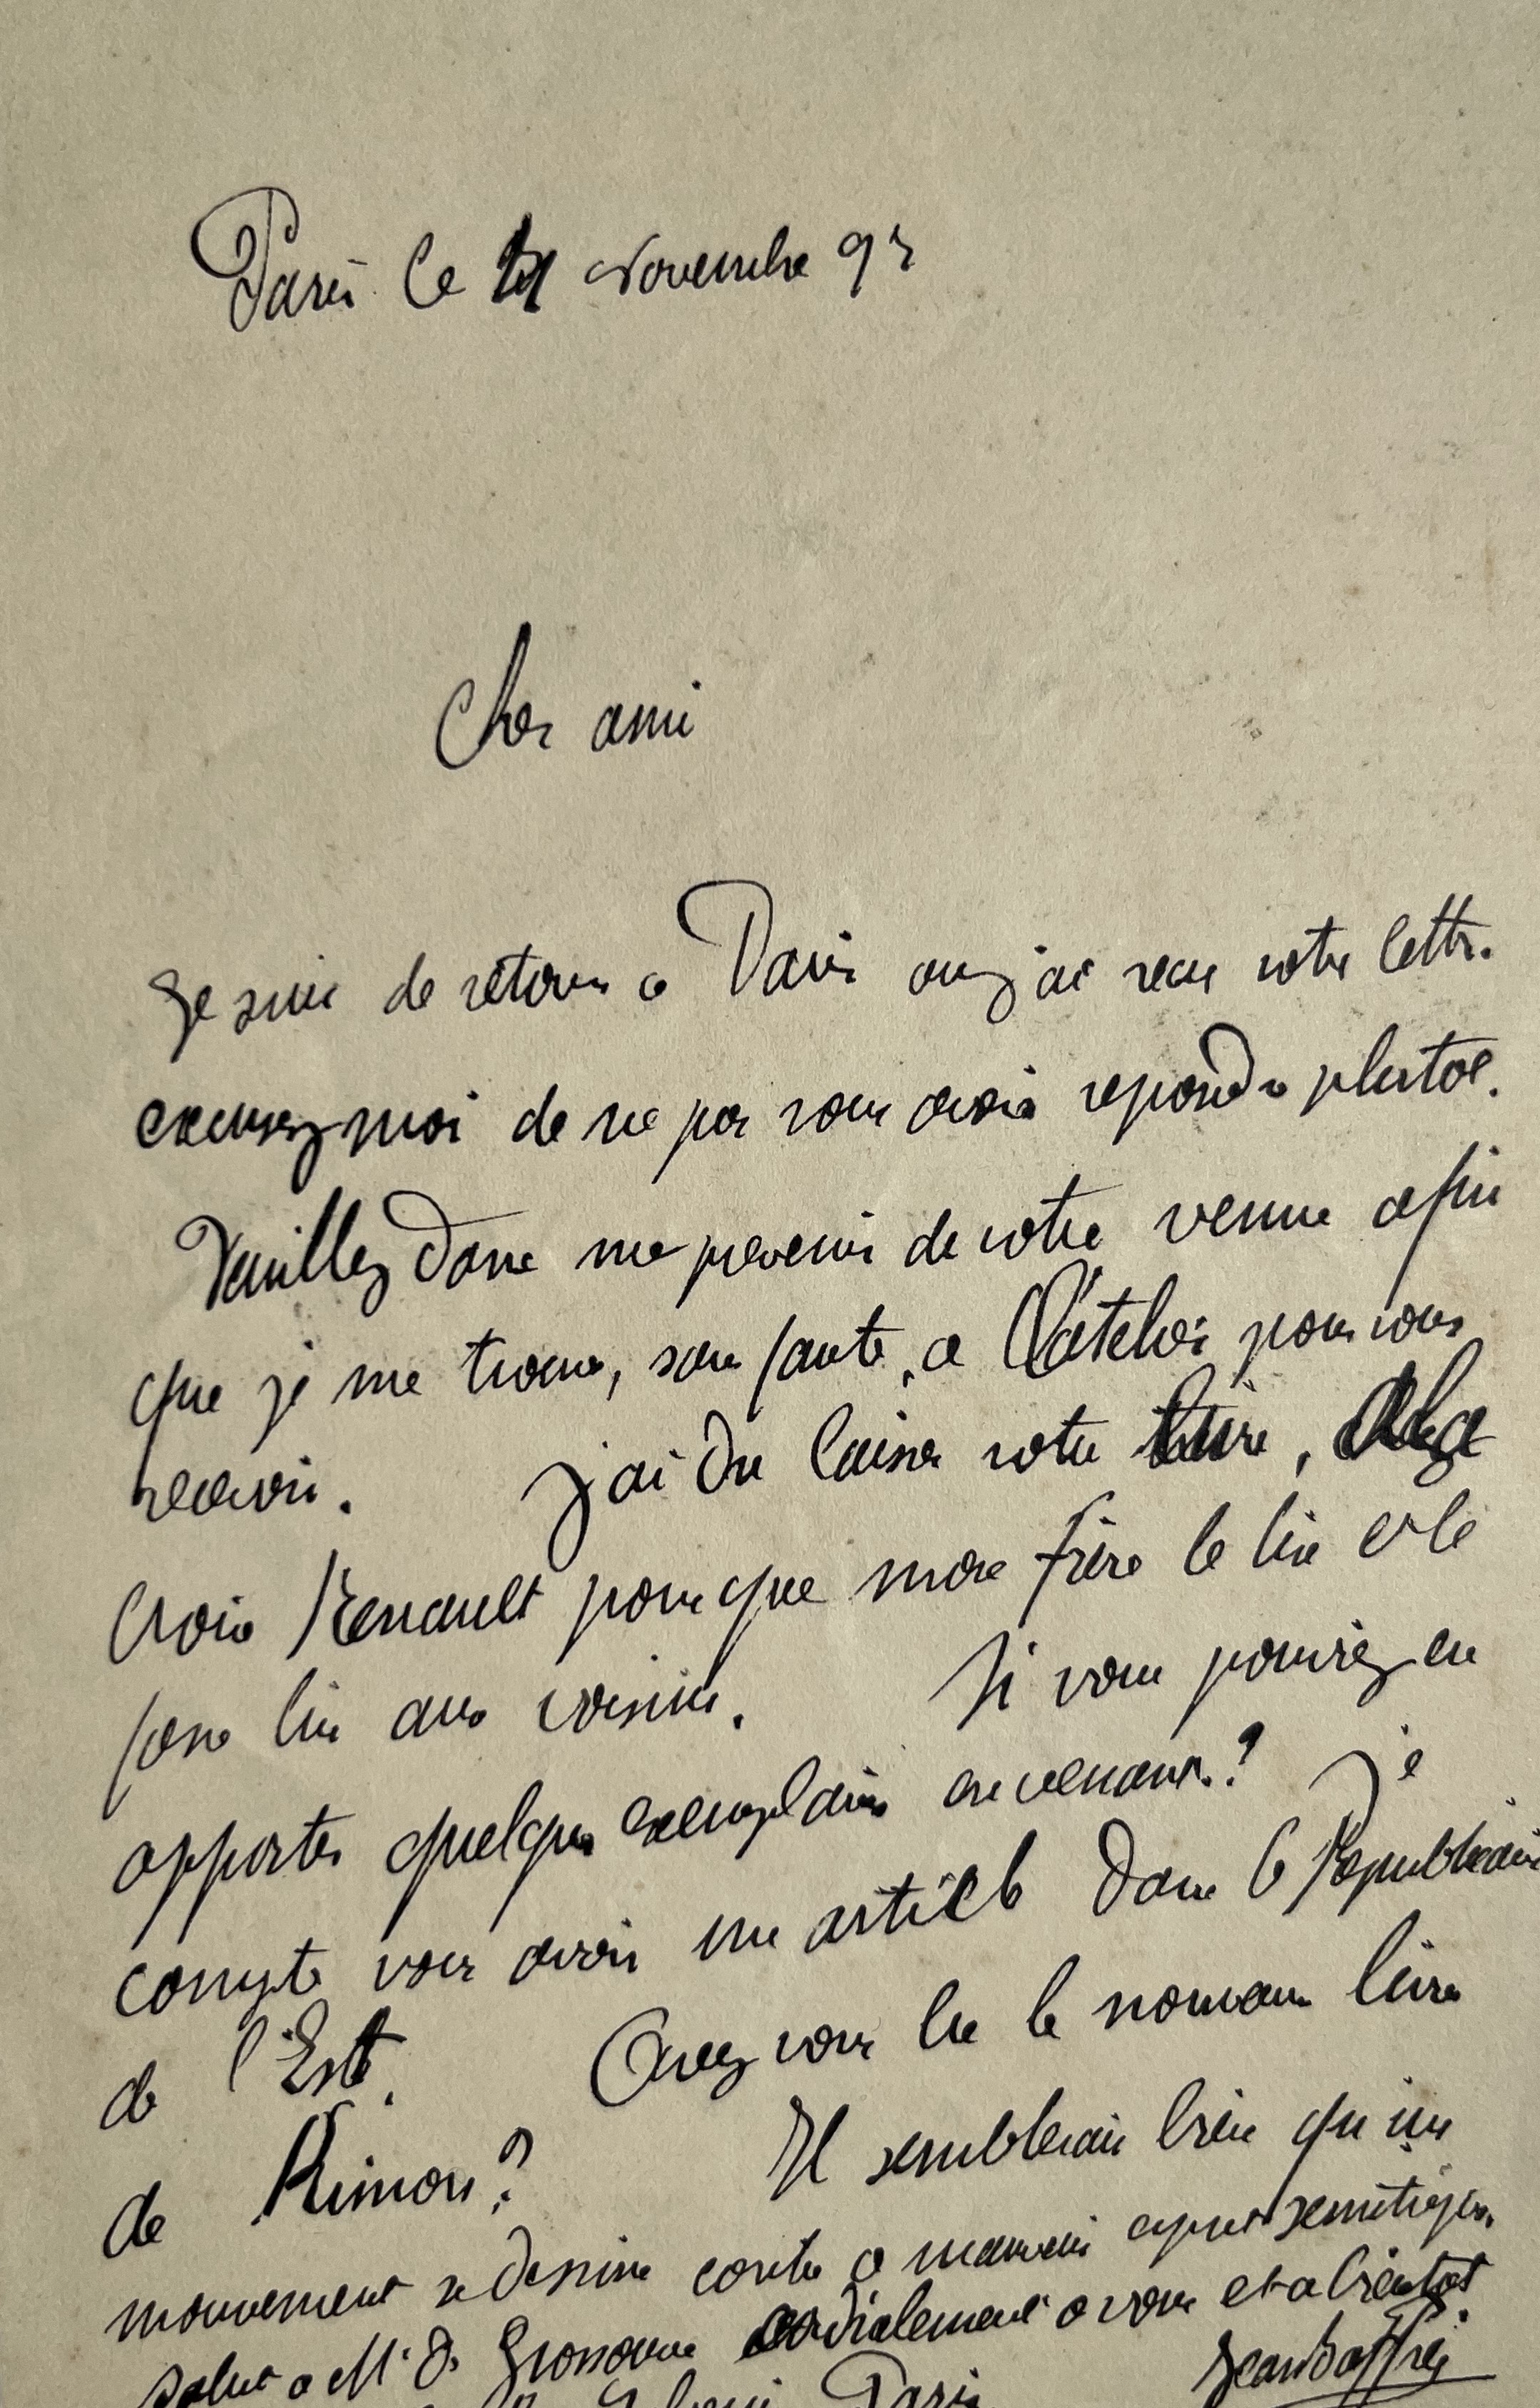 Paris le 21 Novembre 93
Cher ami
Je suis de retour a Paris ou j'ai recu votre lettre.
excusez moi de ne pas vous avoir repondu plutot.
Veuillez donc me prevenir de votre venue afin
que je me trouve, sans faute, a l'atelier pour vous
recevoir. J'ai du laisser votre livre, a la
Croix Renault pour que mon frère le lise et le
fasse lire aux voisins. Si vous pouviez en
apporter quelques exemplaires en venant? Je
compte vous avoir un article dans le Republicain
de l'Est. Avez vous lu le nouveau livre
de Kimon? Il semblerait bien qu'un
mouvement se dessine contre ce mauvais esprit semitique.
Salut a Mr de Grossouvre cordialement a vous et a bientot.
Jean Baffier
Paris